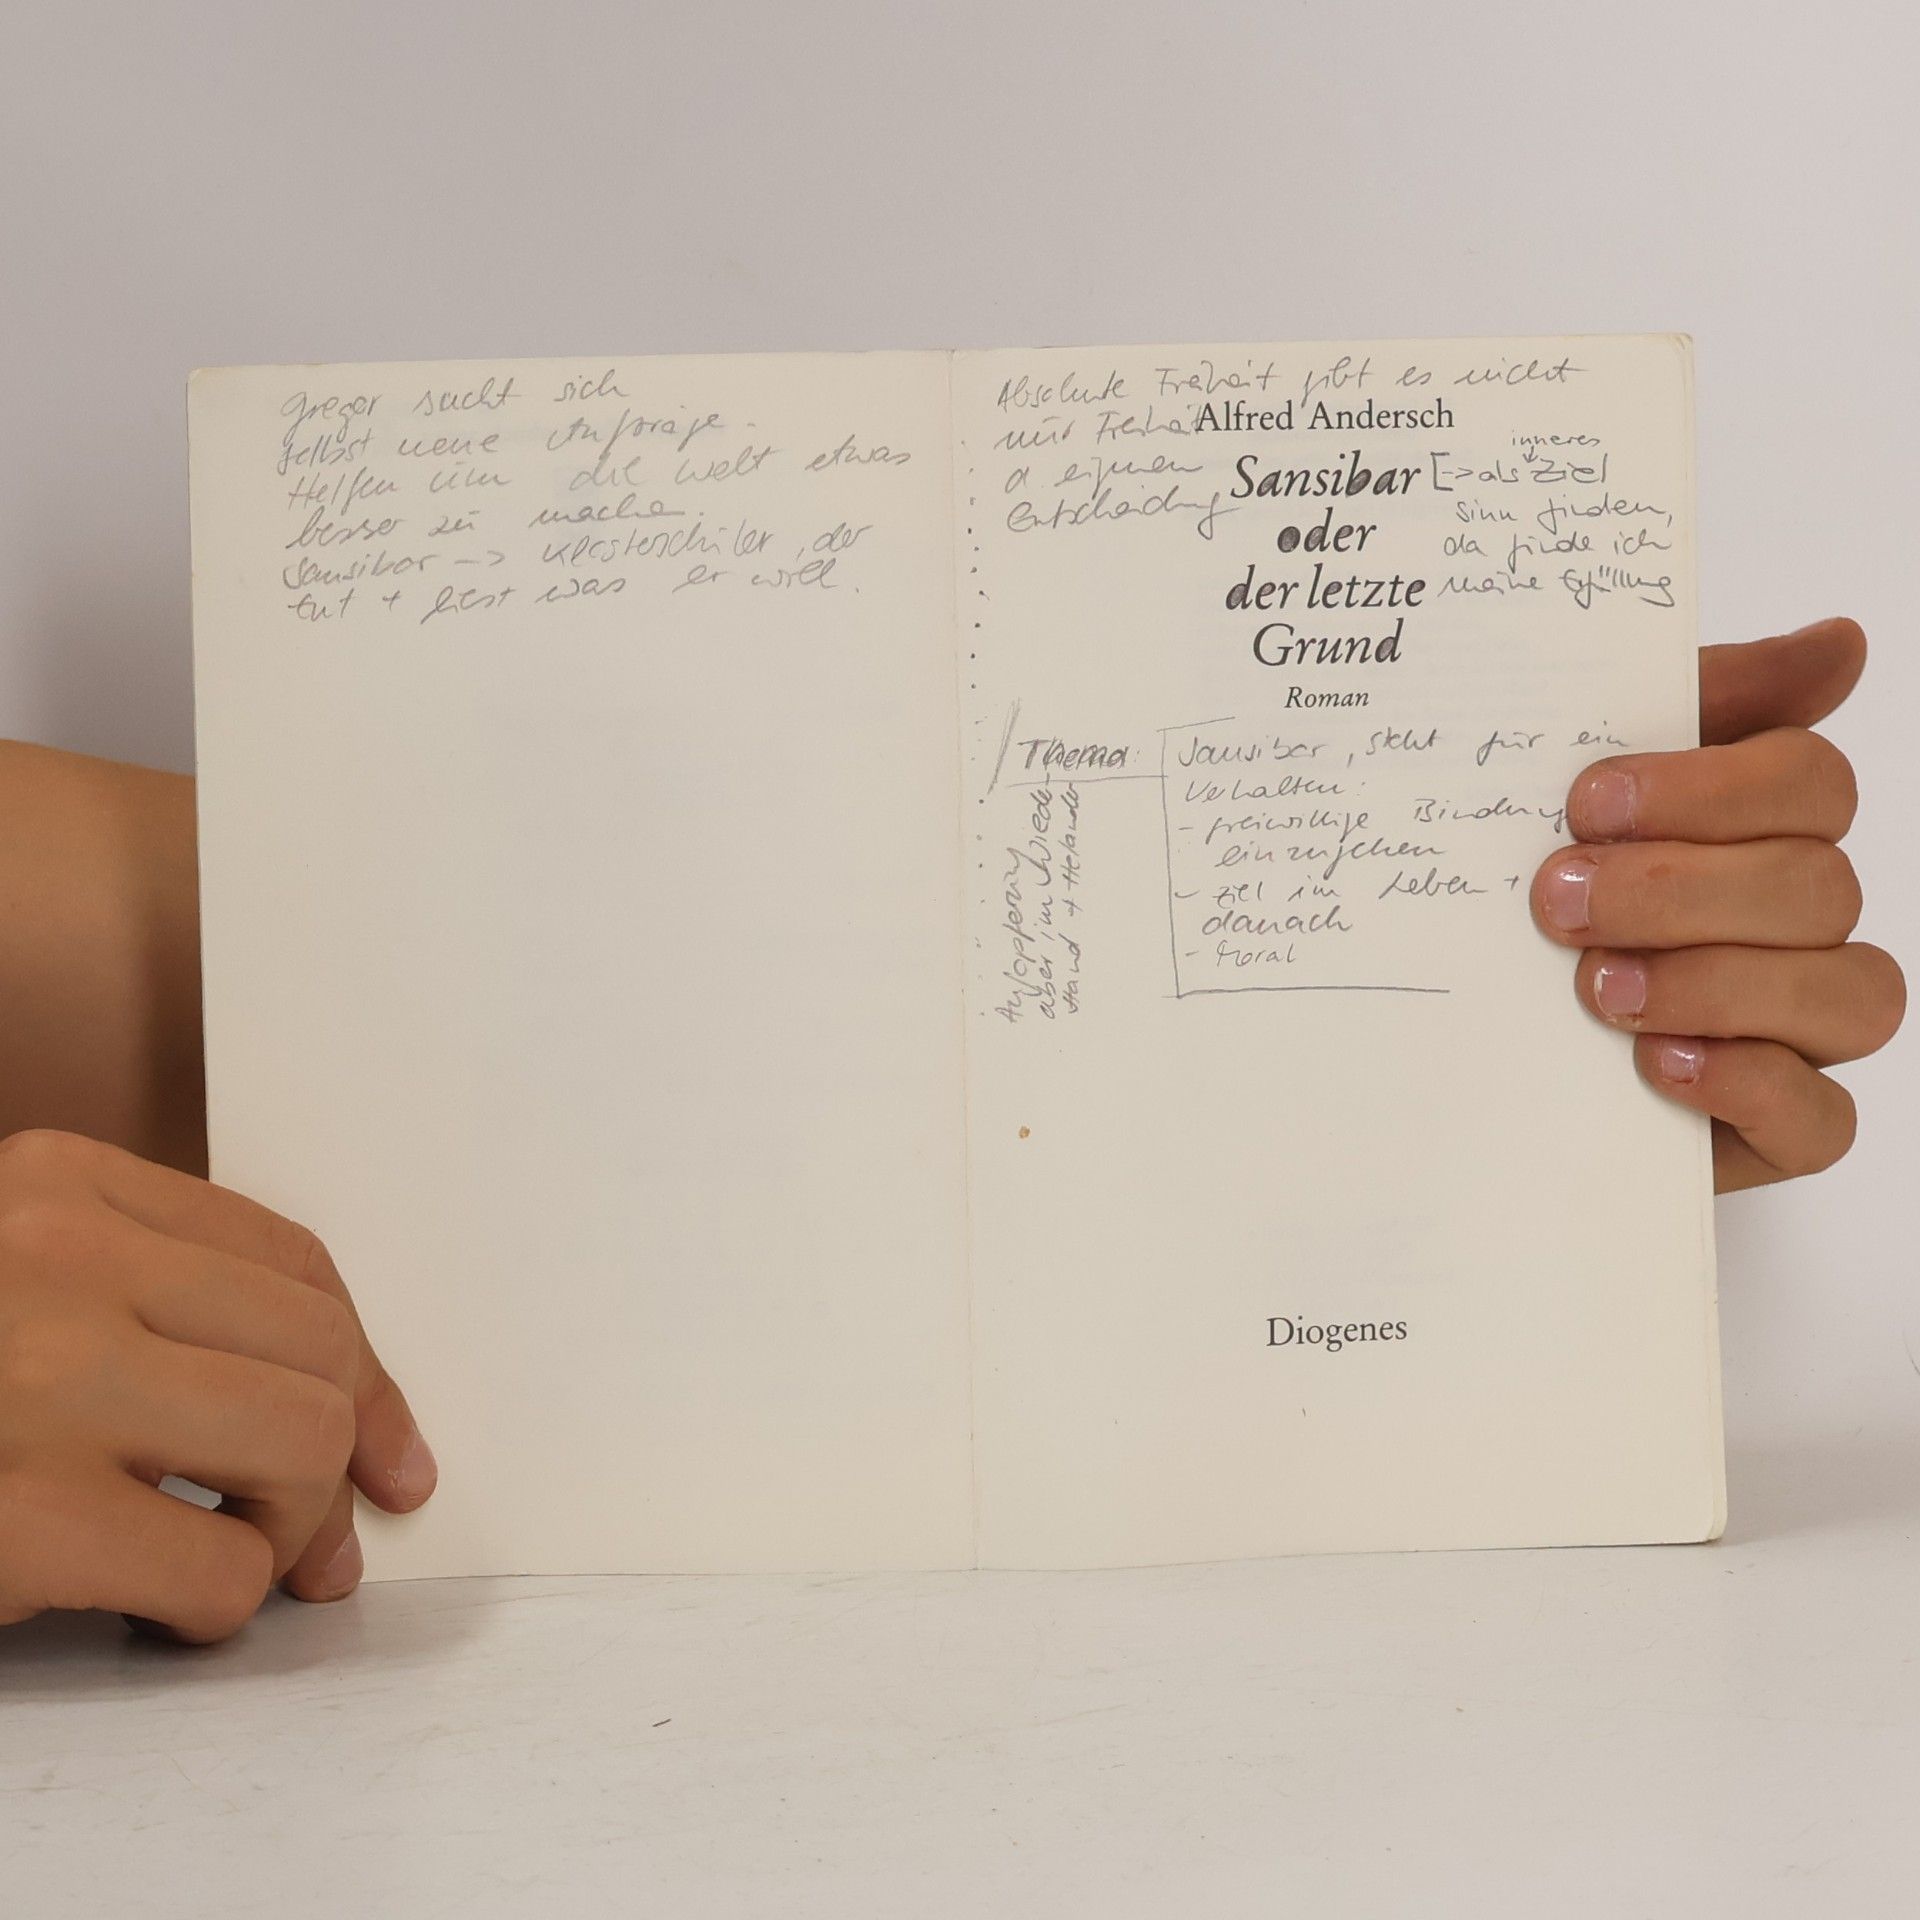 Gregor sucht sich
selbst neue Aufträge.
Helfen um die Welt etwas
besser zu machen.
Sansibar -> Klosterschüler, der
tut + liest was er will.
Absolute Freiheit gibt es nicht
nur Freiheit
eigenen
Entscheidung
Alfred Andersch
Sansibar
oder
der letzte
Grund
Roman
inneres
[-> als Ziel
Sinn finden,
da finde ich
meine Erfüllung
Thema:
Sansibar, steht für ein
Verhalten:
- freiwillige Bindung
einzugehen
- Ziel im Leben +
danach
- Moral
Aufopferung
aber im Wieder-
stand + Helander
Diogenes